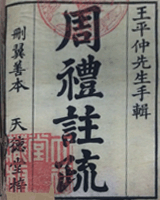 王平仲先生手輯
周禮註疏
刪翼善本　天德堂梓